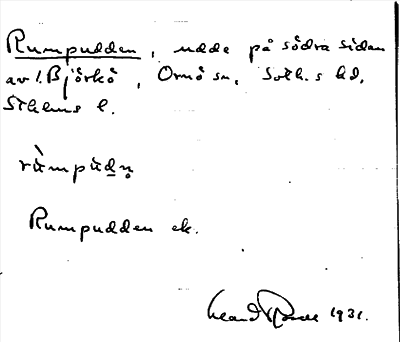 Rumpudden, udde på södra sidan
av l. Björkö, Ornö sn, Soth.s hd,
Sthlms l.
rùmpùdṇ
Rumpudden ek.
1931.